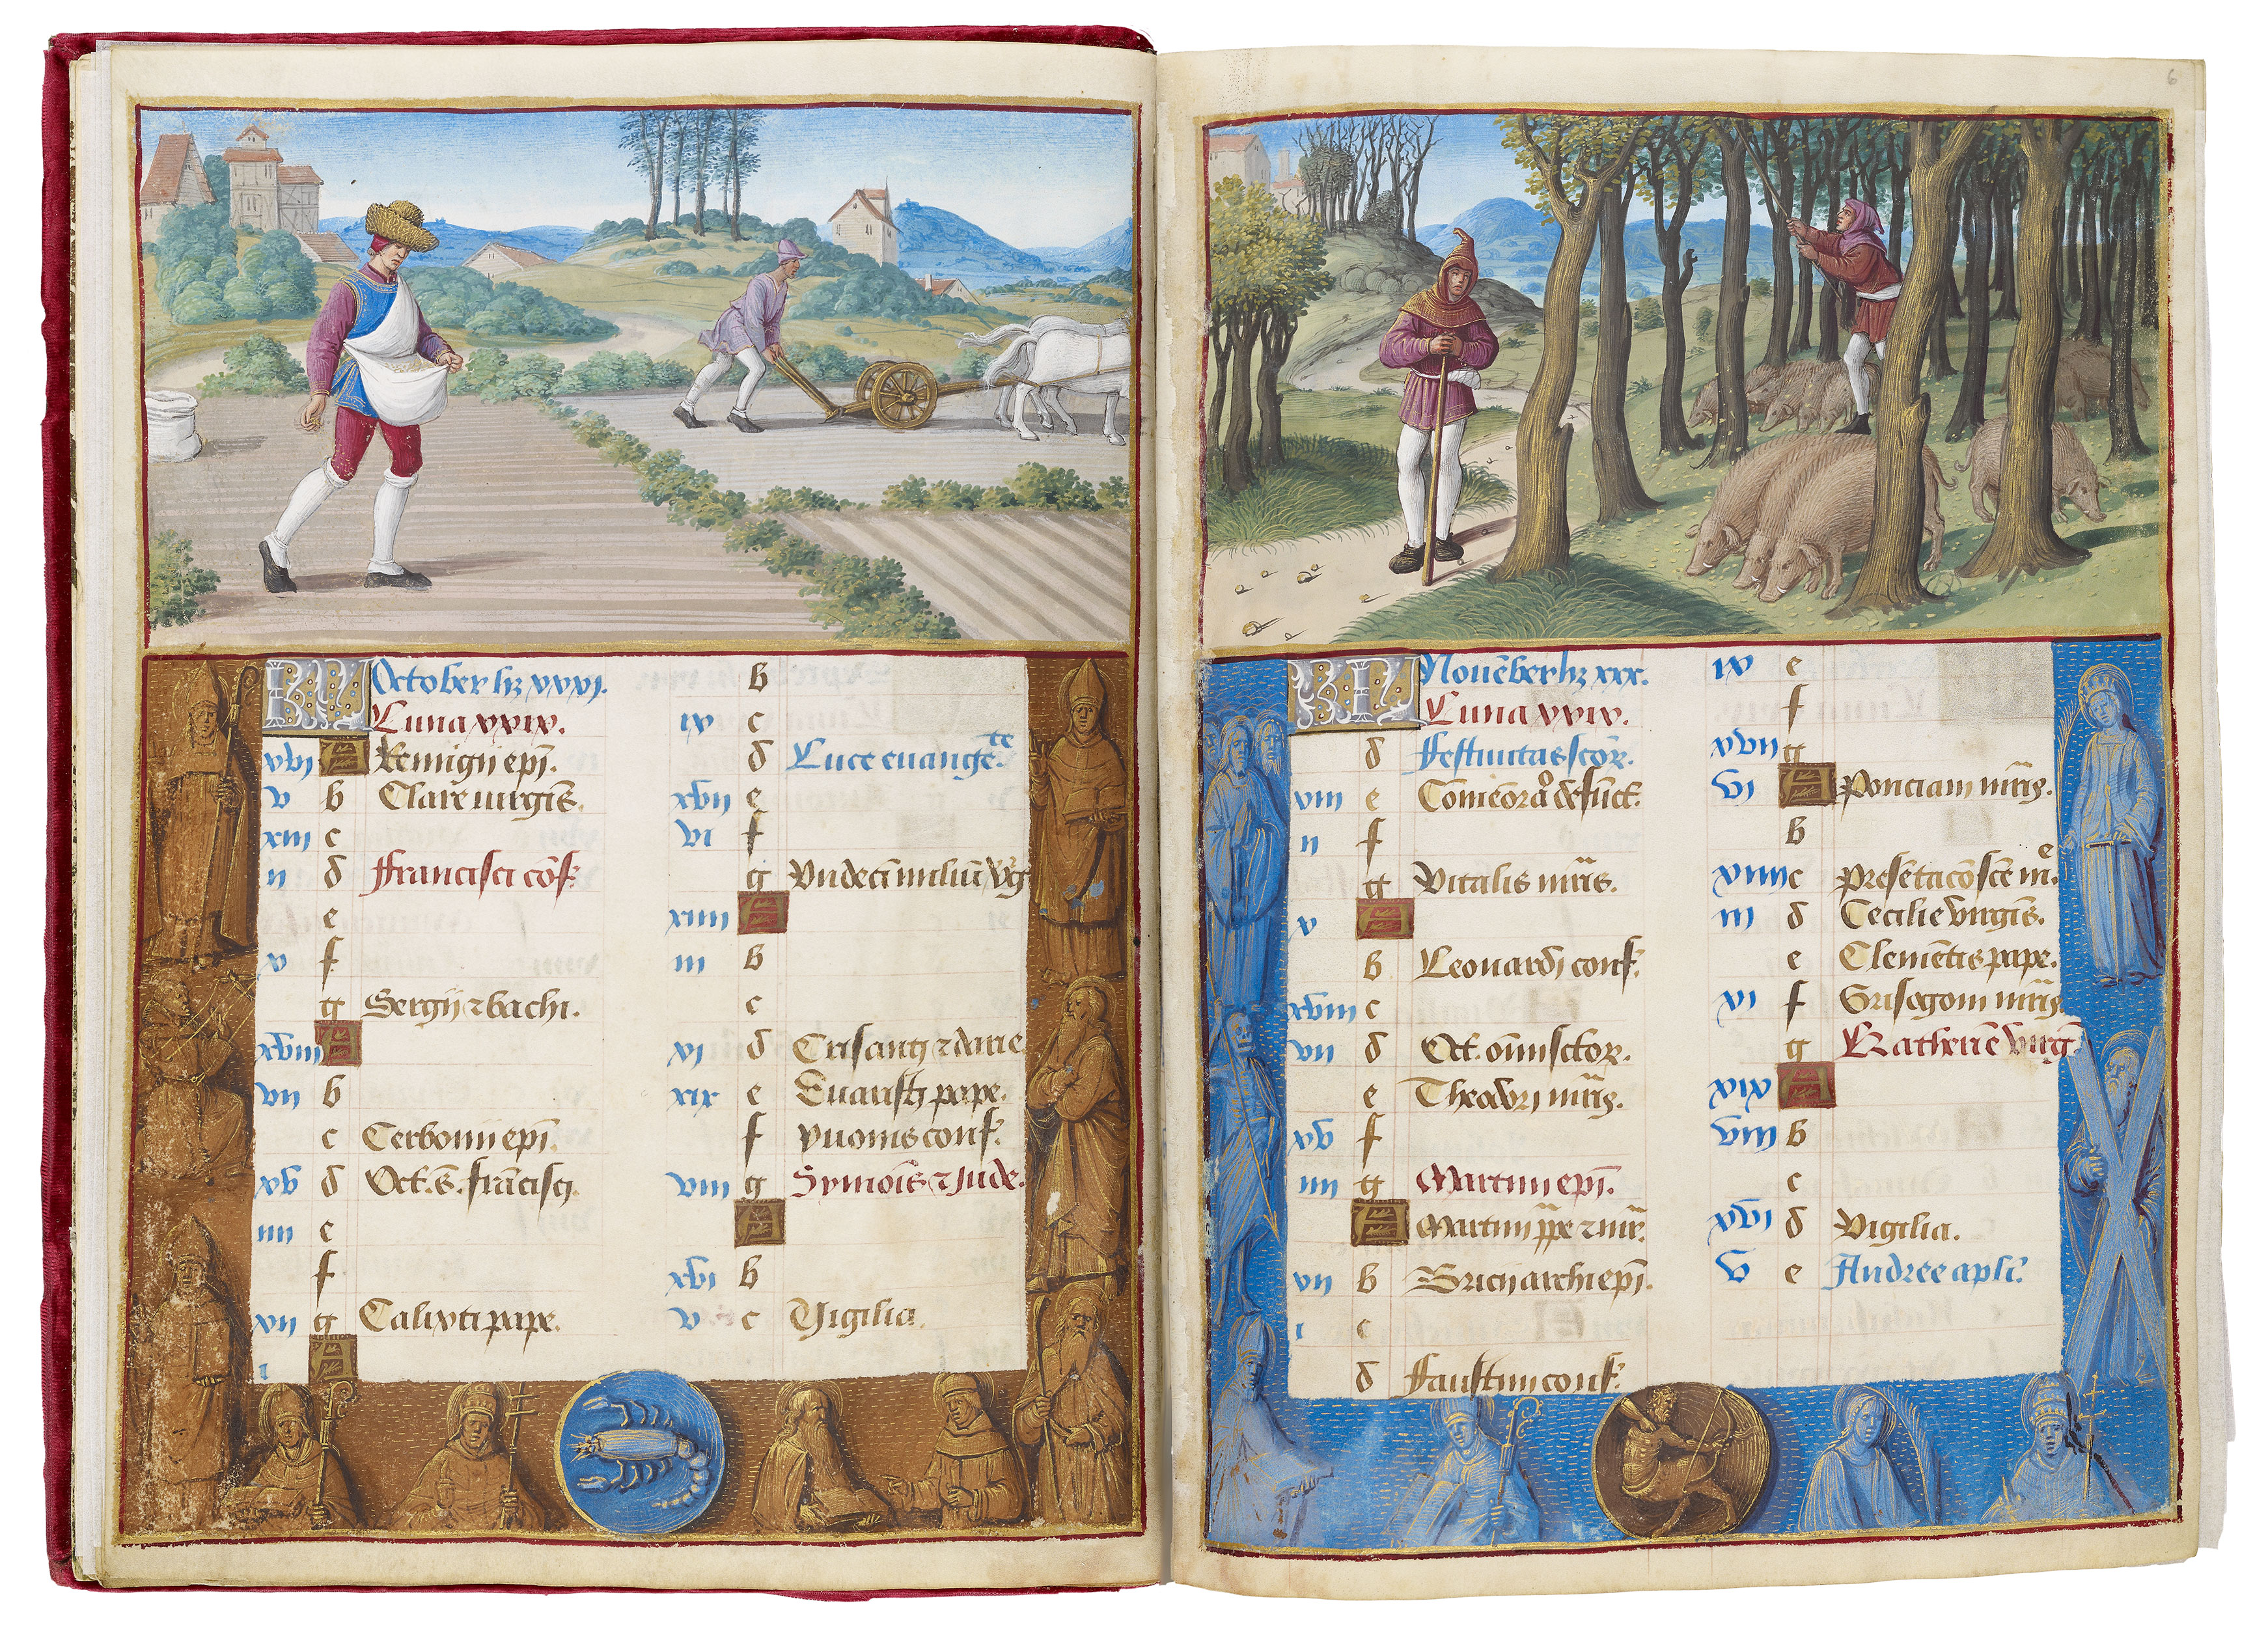 KL October hz xxxi.
Luna xxix.
xvi A Remigii epi.
v b Clare virginis.
xiii c
ii d Francisci cōf.
e
x f
g Sergij ⁊ bachi.
xviii A
vii b
c Cerbonii epi.
xv d Oct. s. francisci
iiii e
f
xii g Calixti pape.
i A
b
ix c
d Luce euangēte
xvii e
vi f
g Undeci miliū Vg
xiiii A
iii b
c
xi d Crisanti ⁊ darie
xix e Euaristi pape.
f yuonis conf.
viii g Symoīs ⁊ Jude.
A
xvi b
v c Vigilia.
6
KL Nouēber hz xxx.
Luna xxix.
d Festiuitas scōr.
viii e Comēora° defūct.
ii f
g Vitalis mr̄is.
v A
b Leonardi conf.
xviii c
vii d Oct. oīm sctor.
e Theodori mr̄is.
xv f
iiii g Martini epi.
A Martini ppe ⁊ mr.
xii b Bricij archiepi.
i c
d Faustini conf.
ix e
f
xvii g
vi A Ponciani mr̄is.
b
xiiii c Presētacō scē m.e
iii d Cecilie virgis.
e Clemētis pape.
xi f Grisogoni mr̄is
g Katherīe virg
xix A
viii b
c
xvi d Vigilia.
v e Andree apli.